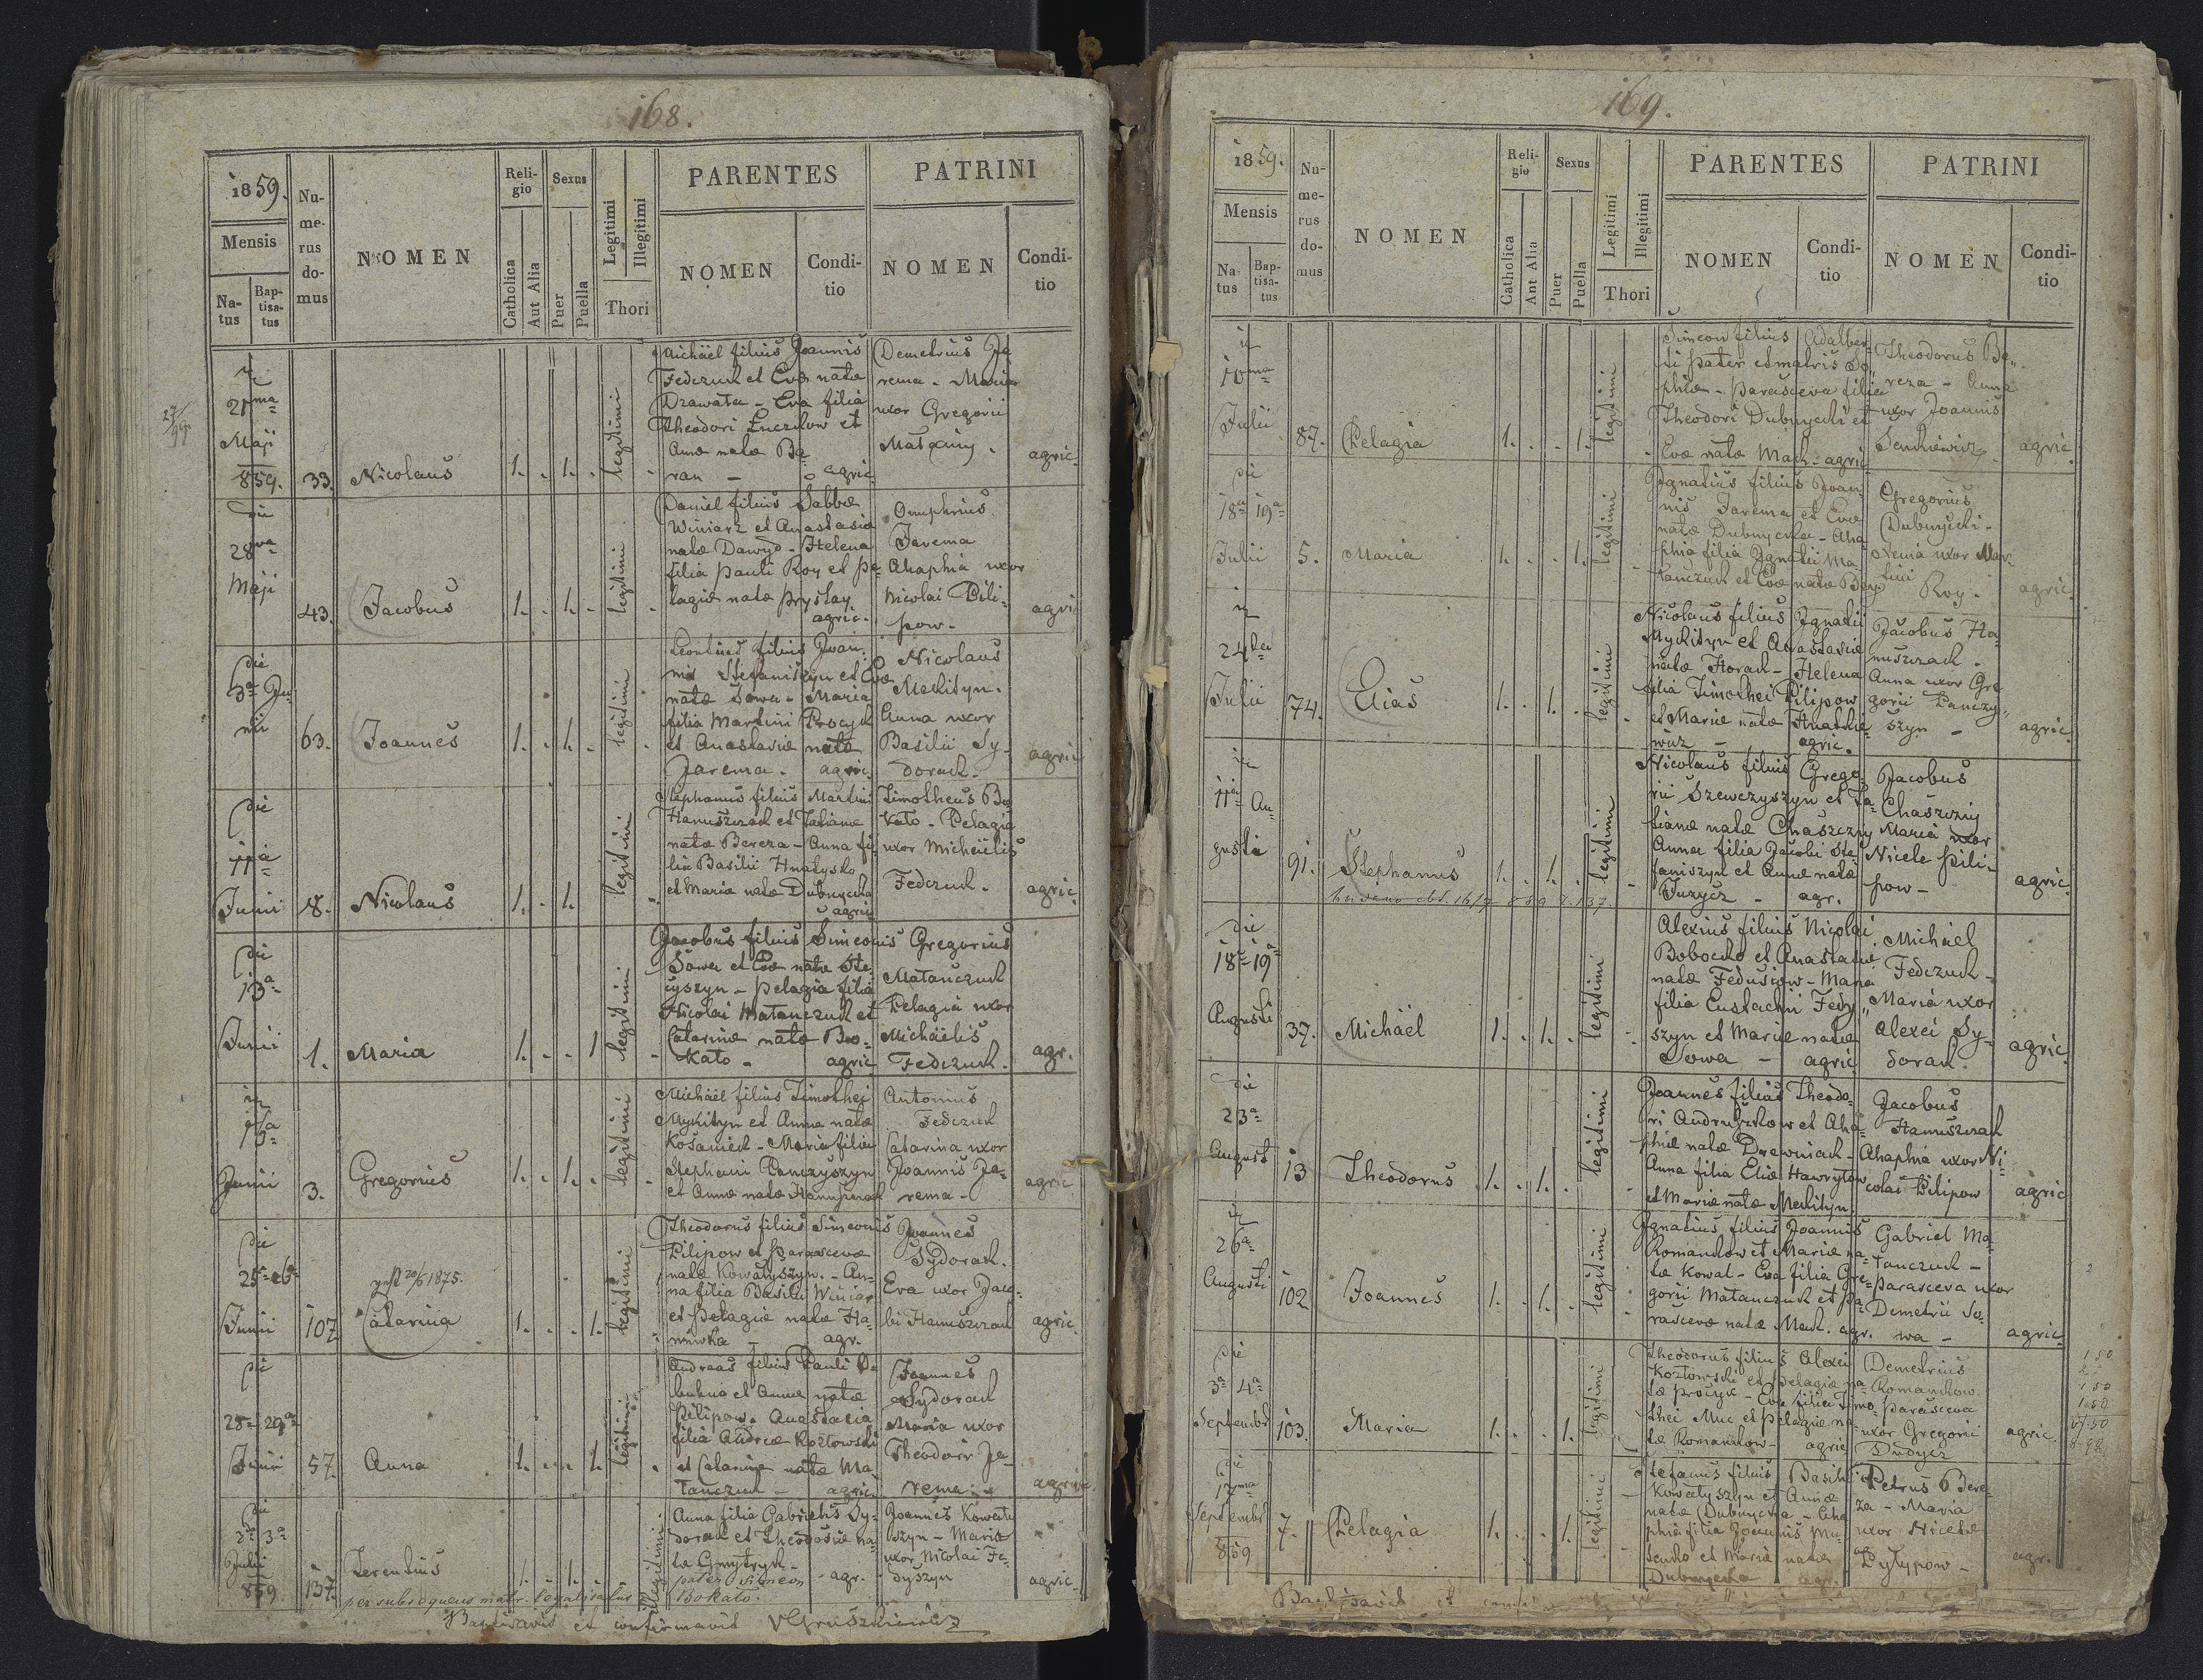 168.
1859.
Mensis
Na-
tus
Bap-
tisa-
tus
Nu-
me-
rus
do-
mus
NOMEN
Reli-
gio
Catholica
Aut Alia
Sexus
Puer
Puella
Legitimi
Illegitimi
Thori
PARENTES
NOMEN
Condi-
tio
PATRINI
NOMEN
Condi-
tio
21ma
Maji
859. 33. Nicolaus 1. . 1. . legitimi
Michäel filius Joannis
Fedczuk et Evæ natæ
Drawata - Eva filia
Theodori Luczkow et
Annæ natæ Ba-
ran - agric.
Demetrius Ja
rema - Maria
uxor Gregorii
agric.
die
28va
Maji
43. Jacobus 1. . 1. . legitimi
Daniel filius Sabbæ
Winiarz et Anastasiæ
natæ Dawyd - Helena
filia Pauli Roy et Pe-
lagiæ natæ Prystay
agric.
Onuphrius
Jarema
Ahaphia uxor
Nicolai Pili-
pow -
agric.
die
Ju-
nii
63. Joannes 1. . 1. . legitimi
Leontius filius Joan-
nis Stefaniszyn et Evæ
natæ Sowa - Maria
filia Martini Procyk
et Anastasiæ natæ
Jarema. agric.
Nicolaus
Mekityn.
Anna uxor
Basilii Sy-
dorak.
agric.
die
11a
Junii 18. Nicolaus 1. . 1. legitimi
Stephanus filius Martini
Hanuszczak et Tatianæ
natæ Bereza - Anna fi-
lia Basilii Hnatysko
et Mariæ natæ Dubnycka
agric.
Timotheus Bo
kato - Pelagia
uxor Michäelis
Fedczuk.
agric.
die
13a
Junii 1. Maria 1. . . 1 legitimi
Jacobus filius Simeonis
Sowa et Evæ natæ Ste-
cyszyn - Pelagia filia
Nicolai Matanczuk et
Catarinæ natæ Bo-
kato - agric.
Gregorius
Matanczuk
Pelagia uxor
Michäelis
Fedczuk.
agr.
Junii 3. Gregorius 1. . 1. . legitimi
Michäel filius Timothei
Mykityn et Annæ natæ
Kosaniek - Maria filia
Stephani Panczyszyn
et Annæ natæ Hanuszczak
Antonius
Fedczuk
Catarina uxor
Joannis Ja-
rema -
agric
die
25a 26a
Junii 107 Catarina 1. . . 1. legitimi
20/6 1875.
Theodorus filius Simeonis
Pilipow et Parascevæ
natæ Kowalyszyn. - An-
na filia Basilii Winiar
et Pelagiæ natæ Ha-
agr.
Joannes
Sydorak.
Eva uxor Jaco-
bi Hanuszczak
agric.
die
28a 29a
Junii 57. Anna 1. . . 1. legitimi
Andreas filius Pauli
et Annæ natæ
Pilipow. Anastasia
filia Andreæ Kozłowski
et Catarinæ natæ Ma-
tanczuk - agric.
Joannes
Sydorak
Maria uxor
Theodori Ja-
rema -
agric.
die
2a 3a
Julii
859 137. Terentius 1. . 1. . illegitimi
per subsequens matr. legalisatus
Anna filia Gabrielis Sy-
dorak et Theodosiæ na-
tæ Gmytryk -
pater Simeon - agr.
Bokato.
Joannes Kowaly
szyn - Maria
uxor Nicolai Fe-
dyszyn
agric.
Baptisavit et confirmavit Gruszkiewicz
169.
1859.
Mensis
Na-
tus
Bap-
tisa-
tus
Nu-
me-
rus
do-
mus
NOMEN
Reli-
gio
Catholica
Aut Alia
Sexus
Puer
Puella
Legitimi
Illegitimi
Thori
PARENTES
NOMEN
Condi-
tio
PATRINI
NOMEN
Condi-
tio
Julii 87. Pelagia 1. . . 1. legitimi
Simeon filius Adalber-
ti pater et matris So-
phiæ - Parasceva filia
Theodori Dubnycki et
Evæ natæ Mach - agric
Theodorus Be-
reza - Anna
uxor Joannis
Senkiewicz
agric.
die
18a 19a
Julii 5. Maria 1. . . 1. legitimi
Ignatius filius Joan-
nis Jarema et Evæ
natæ Dubnycka - Aha
phia filia Ignatii Ma-
tanczuk et Evæ natæ
Gregorius
Dubnycki -
uxor Mar-
tini
Roy.
agric.
24ta
Julii 74. Elias 1. . 1. . legitimi
Nicolaus filius Ignatii
Mykityn et Anastasiæ
natæ Horak - Helena
filia Timothei Pilipow
et Mariæ natæ Hnatkie-
wicz - agric.
Jacobus Ha
nuszczak.
Anna uxor Gre
gorii Panczy-
szyn -
agric.
11a Au-
gusti 91. Stephanus 1. . 1. . legitimi
Nicolaus filius Grego-
rii Szewczyszyn et Ta-
tianæ natæ Chaszczy
Anna filia Jacobi Ste-
faniszyn et Annæ natæ
- agr.
Jacobus
Chaszczy
Maria uxor
Nicetæ Pili-
pow -
agric.
die
18a 19a
Augusti 37. Michäel 1. . 1. . legitimi
Alexius filius Nicolai
Bobocko et Anastasiæ
natæ Fedusiow - Maria
filia Eustachii Fedy-
szyn et Mariæ natæ
Sowa - agric
Michäel
Fedczuk -
Maria uxor
Alexei Sy-
dorak.
agric.
die
23a
August 13 Theodorus 1. . 1. . legitimi
Joannes filius Theodo-
ri Andruszkow et Aha-
phiæ natæ Drewniak -
Anna filia Eliæ Hawrylow
et Mariæ natæ Mekityn.
Jacobus
Hanuszczak
Ahaphia uxor Ni-
colai Pilipow
agric
26a
Augusti 102 Joannes 1. . 1. . legitimi
Ignatius filius Joannis
Romankow et Mariæ na-
tæ Kowal - Eva filia Gre-
gorii Matanczuk et Pa-
rascevæ natæ Mach. agr.
Gabriel Ma-
tanczuk -
Parasceva uxor
Demetrii So-
wa -
agric.
die
3a 4a
Septembr 103. Maria 1. . . 1. legitimi
Theodorus filius Alexei
Kozłowski et Pelagiæ na-
tæ Procyk - Eva filia Timo-
thei Muc et Pelagiæ na-
tæ Romankow - agric
Demetrius
Romankow.
Parasceva
uxor Gregorii
agric.
die
17ma
Septembr
859 7. Pelagia 1. . . 1. legitimi
Stefanus filius Basilii
Kowalyszyn et Annæ
natæ Dubnycka - Aha
phia filia Joannis
et Mariæ natæ
Dubnycka agr.
Petrus Bere-
za - Maria
uxor Nicetæ
Pylypow -
agr.
Baptisavit et